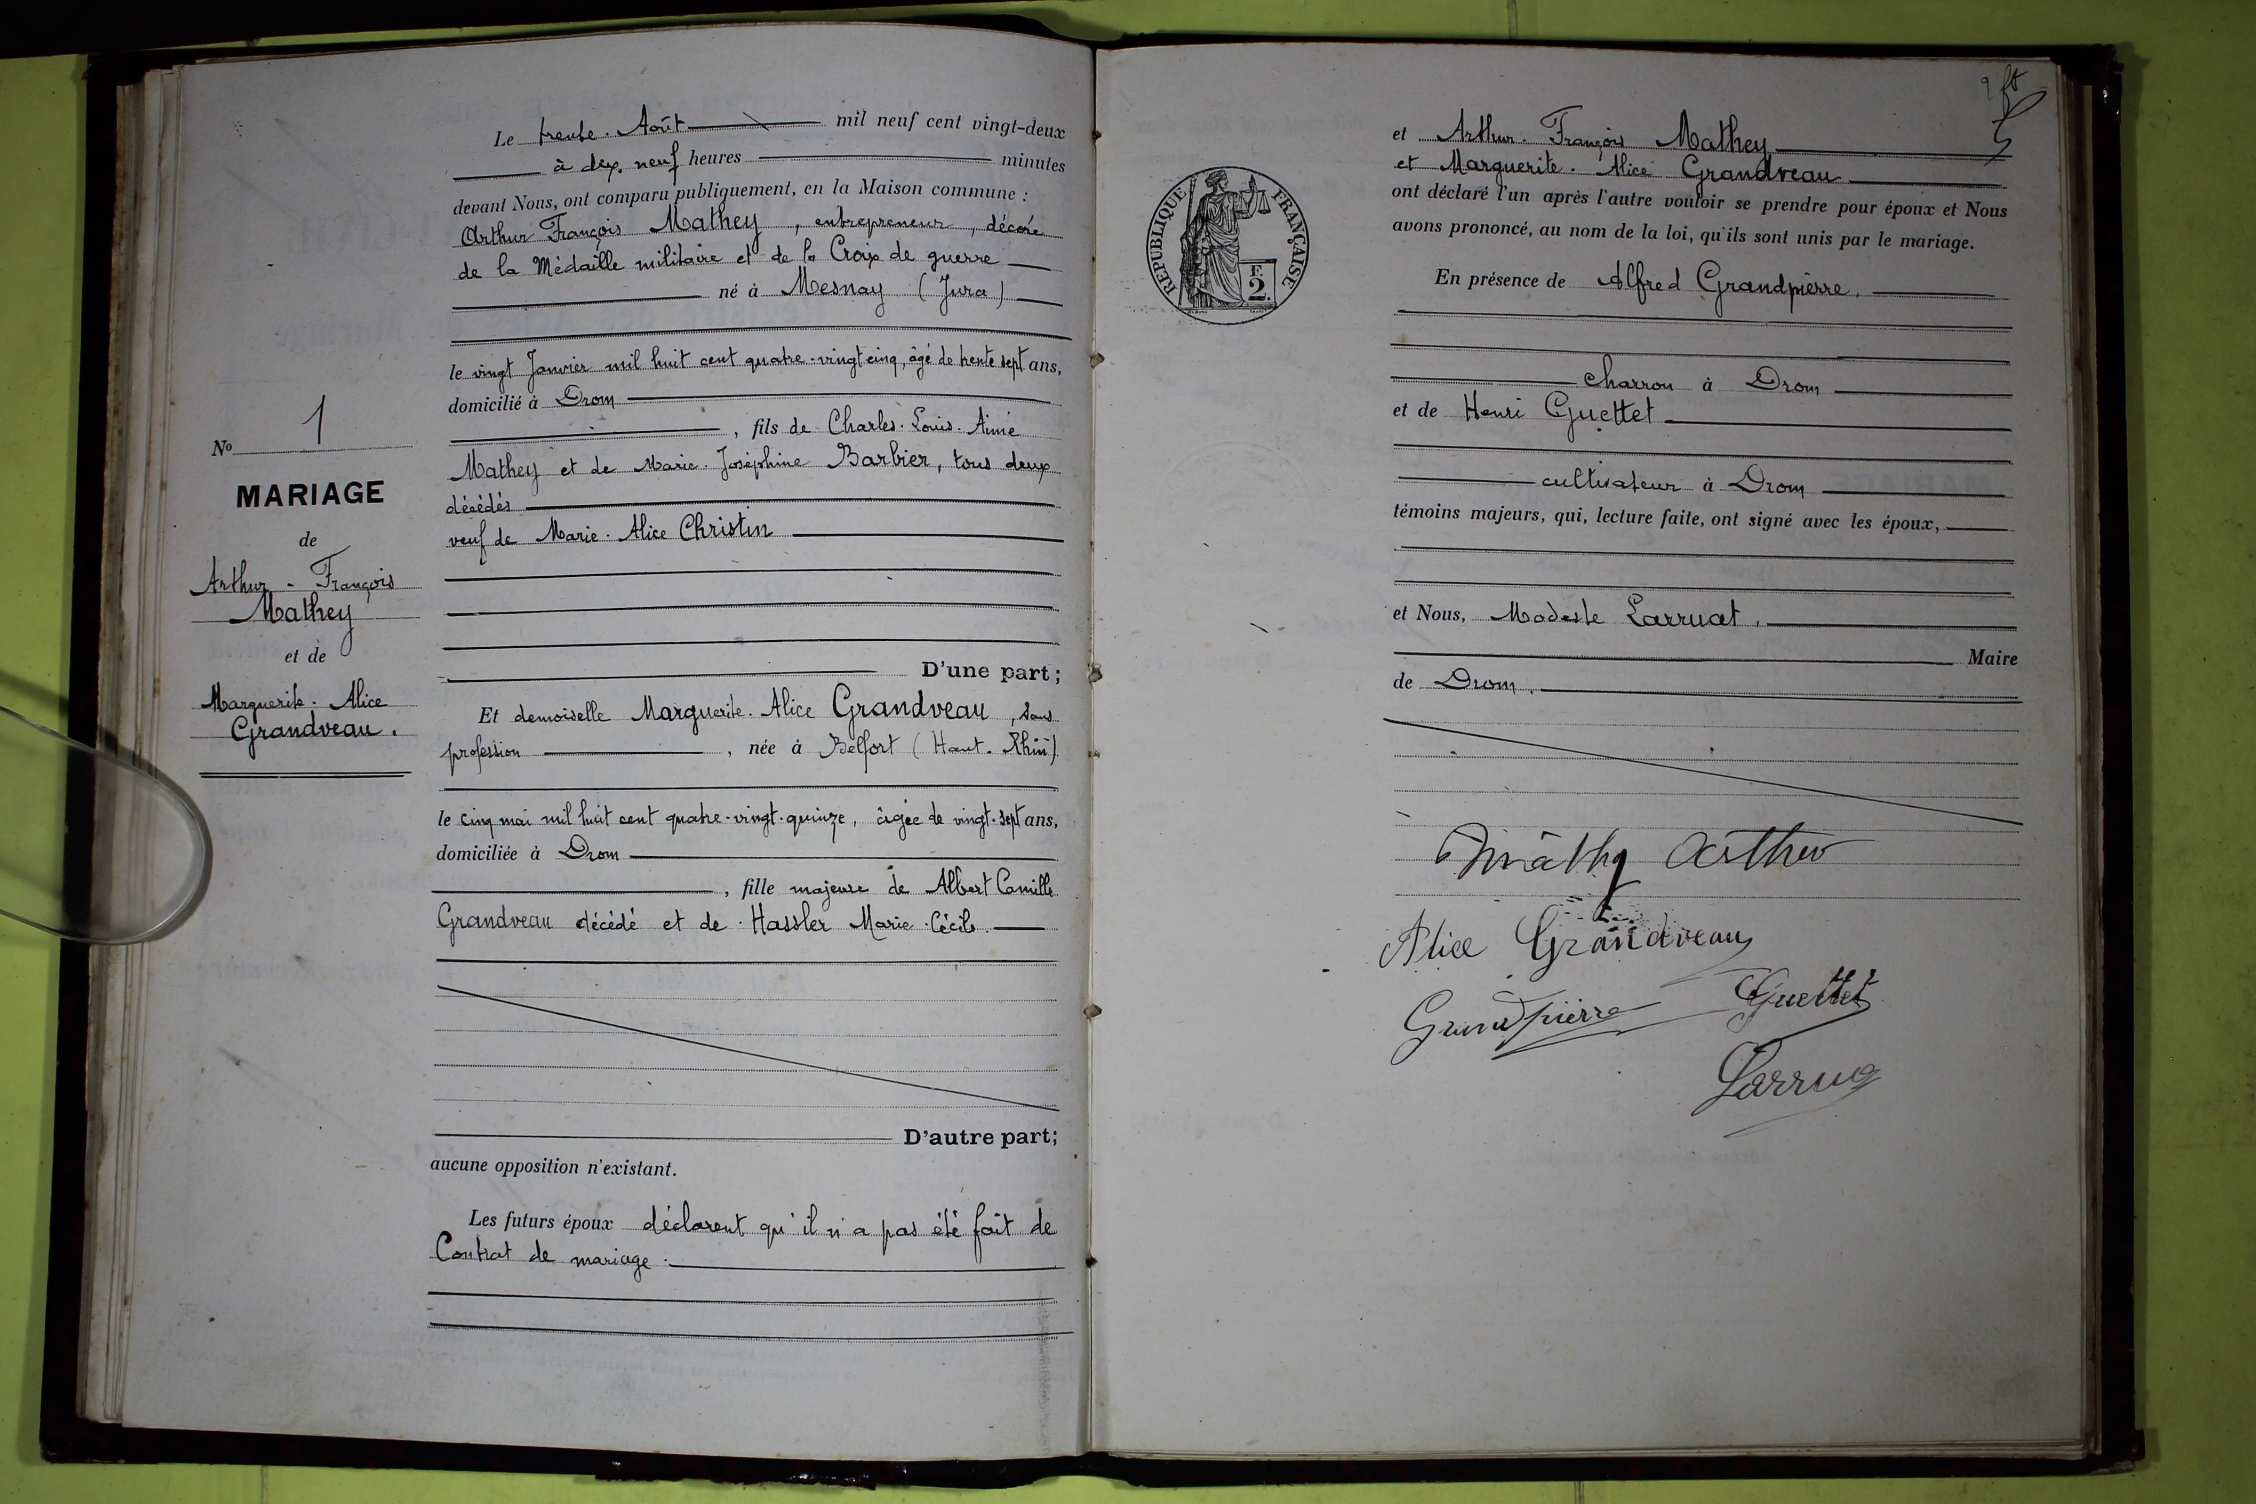 Le trente. Août mil neuf cent vingt-deux
à dix. neuf heures minutes
devant Nous, ont comparu publiquement, en la Maison commune :
Arthur François Mathey, entrepreneur, décoré
de la Médaille militaire et de la Croix de guerre
né à Mesnay (Jura)
le vingt Janvier mil huit cent quatre-vingt cinq, âgé de trente sept ans,
domicilié à Drom
, fils de Charles. Louis. Aimé
Mathey et de Marie. Joséphine Barbier, tous deux
décédés
veuf de Marie. Alice Christin
D'une part;
Et demoiselle Marguerite. Alice Grandveau, sans
profession , née à Belfort (Haut. Rhin)
le cinq mai mil huit cent quatre-vingt-quinze, âgée de vingt-sept ans,
domiciliée à Drom
, fille majeure de Albert Camille
Grandveau décédé et de Hassler Marie Cécile.
D'autre part;
aucune opposition n'existant.
Les futurs époux déclarent qu'il n'a pas été fait de
Contrat de mariage.
No 1
MARIAGE
de
Arthur - François
Mathey
et de
Marguerite. Alice
Grandveau.
RÉPUBLIQUE FRANÇAISE
F.
2.
et Arthur. François Mathey
et Marguerite. Alice Grandveau
ont déclaré l'un après l'autre vouloir se prendre pour époux et Nous
avons prononcé, au nom de la loi, qu'ils sont unis par le mariage.
En présence de Alfred Grandpierre.
charron à Drom
et de Henri Guettet
cultivateur à Drom
témoins majeurs, qui, lecture faite, ont signé avec les époux,
et Nous, Modeste Larruat.
Maire
de Drom.
Mâthy Arthur
Alice Grandveau
Grandpierre Guettet
Larrua